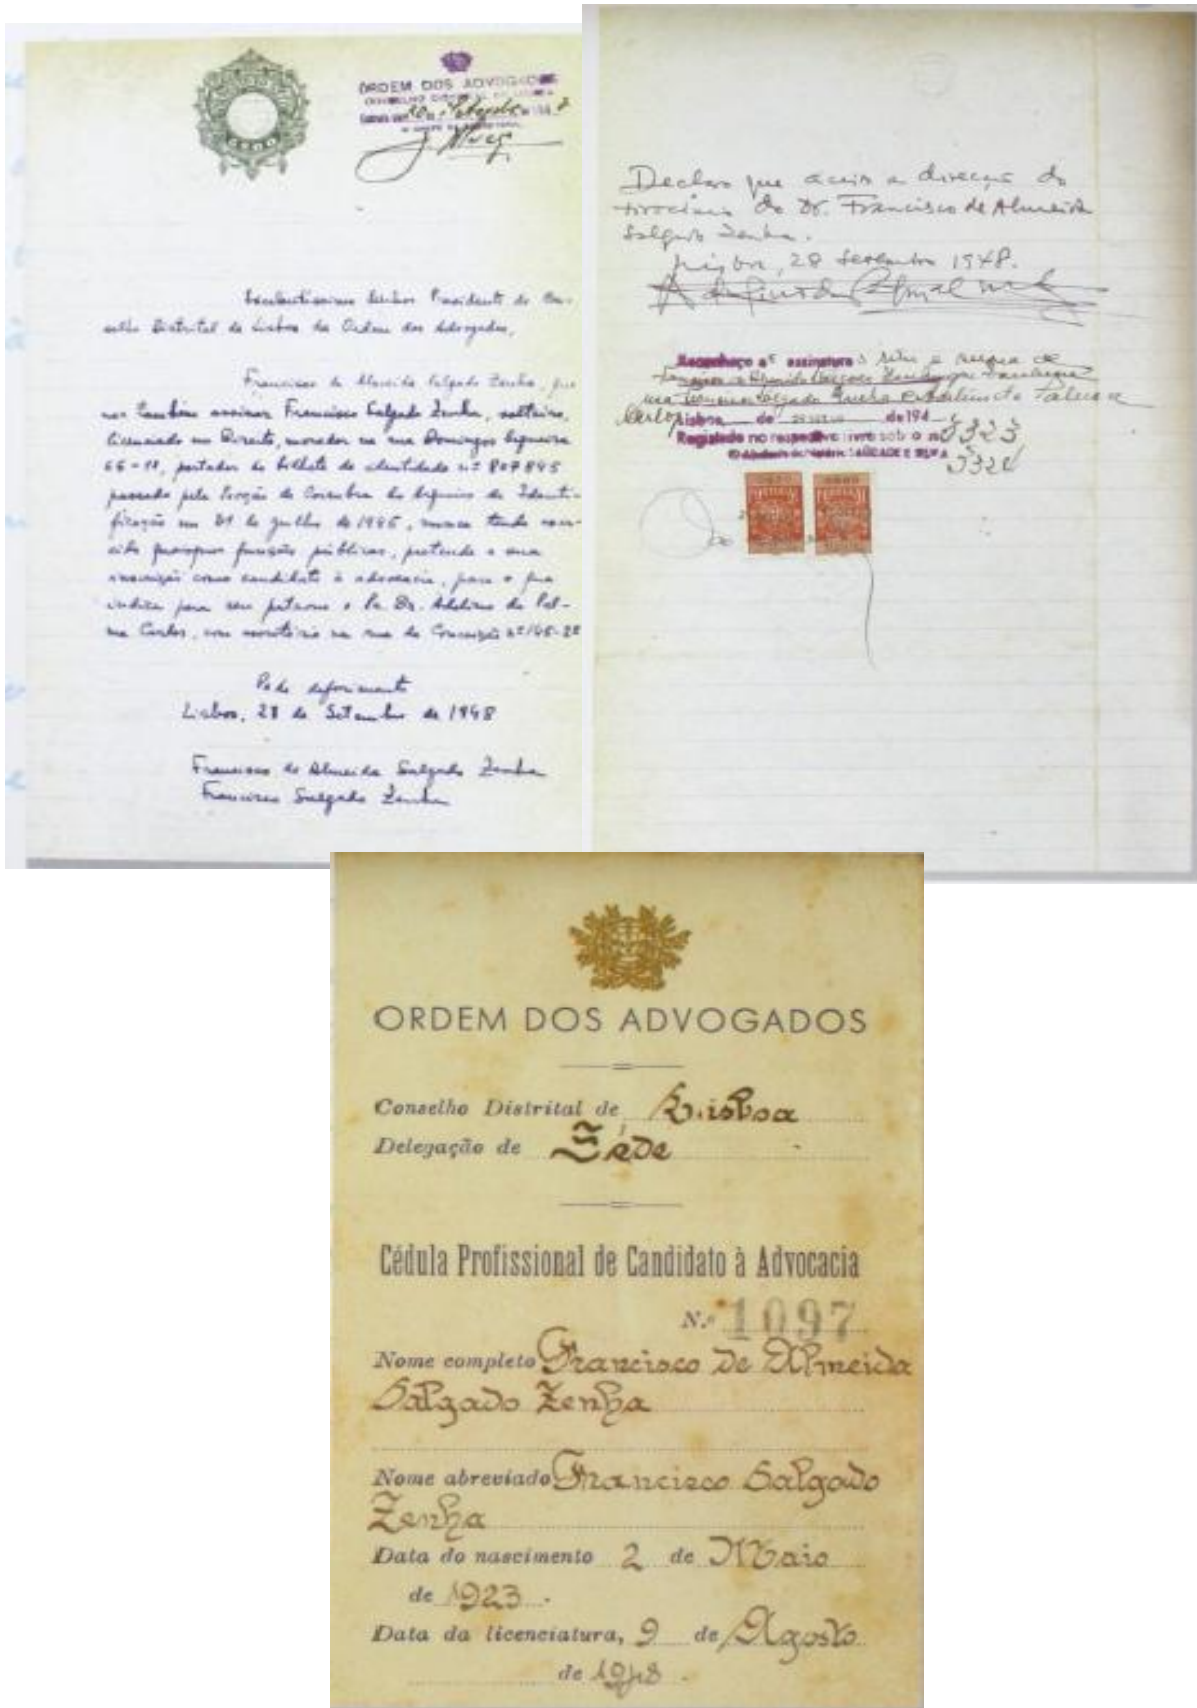 ORDEM DOS ADVOGADOS
CONSELHO DISTRITAL DE LISBOA
Excelentíssimo Senhor Presidente do Con-
selho Distrital de Lisboa da Ordem dos Advogados,
Francisco de Almeida Salgado Zenha, que
usa também assinar Francisco Salgado Zenha, solteiro,
licenciado em Direito, morador na rua Domingos Sequeira
portador do bilhete de identidade nº 807845
passado pela Secção de Coimbra do Arquivo de Identi-
ficação em de Julho de nunca tendo exer-
cido quaisquer funções públicas, pretende a sua
inscrição como candidato à advocacia, para o que
indica para seu patrono o Sr. Dr. Adelino da Pal-
ma Carlos, com escritório na rua da Conceição nº
Pede deferimento
Lisboa, 28 de Setembro de 1948
Francisco de Almeida Salgado Zenha
Francisco Salgado Zenha
Declaro que aceito a direcção do
tirocínio do Dr. Francisco de Almeida
Salgado Zenha.
Lisboa, 28 Setembro 1948.
Reconheço as assinaturas
Carlos
Lisboa, de de 194
Registado no respectivo livro sob o nº 5323
ORDEM DOS ADVOGADOS
Conselho Distrital de Lisboa
Delegação de Séde
Cédula Profissional de Candidato à Advocacia
N.º 1097
Nome completo Francisco de Almeida
Salgado Zenha
Nome abreviado Francisco Salgado
Zenha
Data do nascimento 2 de Maio
de 1923.
Data da licenciatura, 9 de Agosto
de 1948.